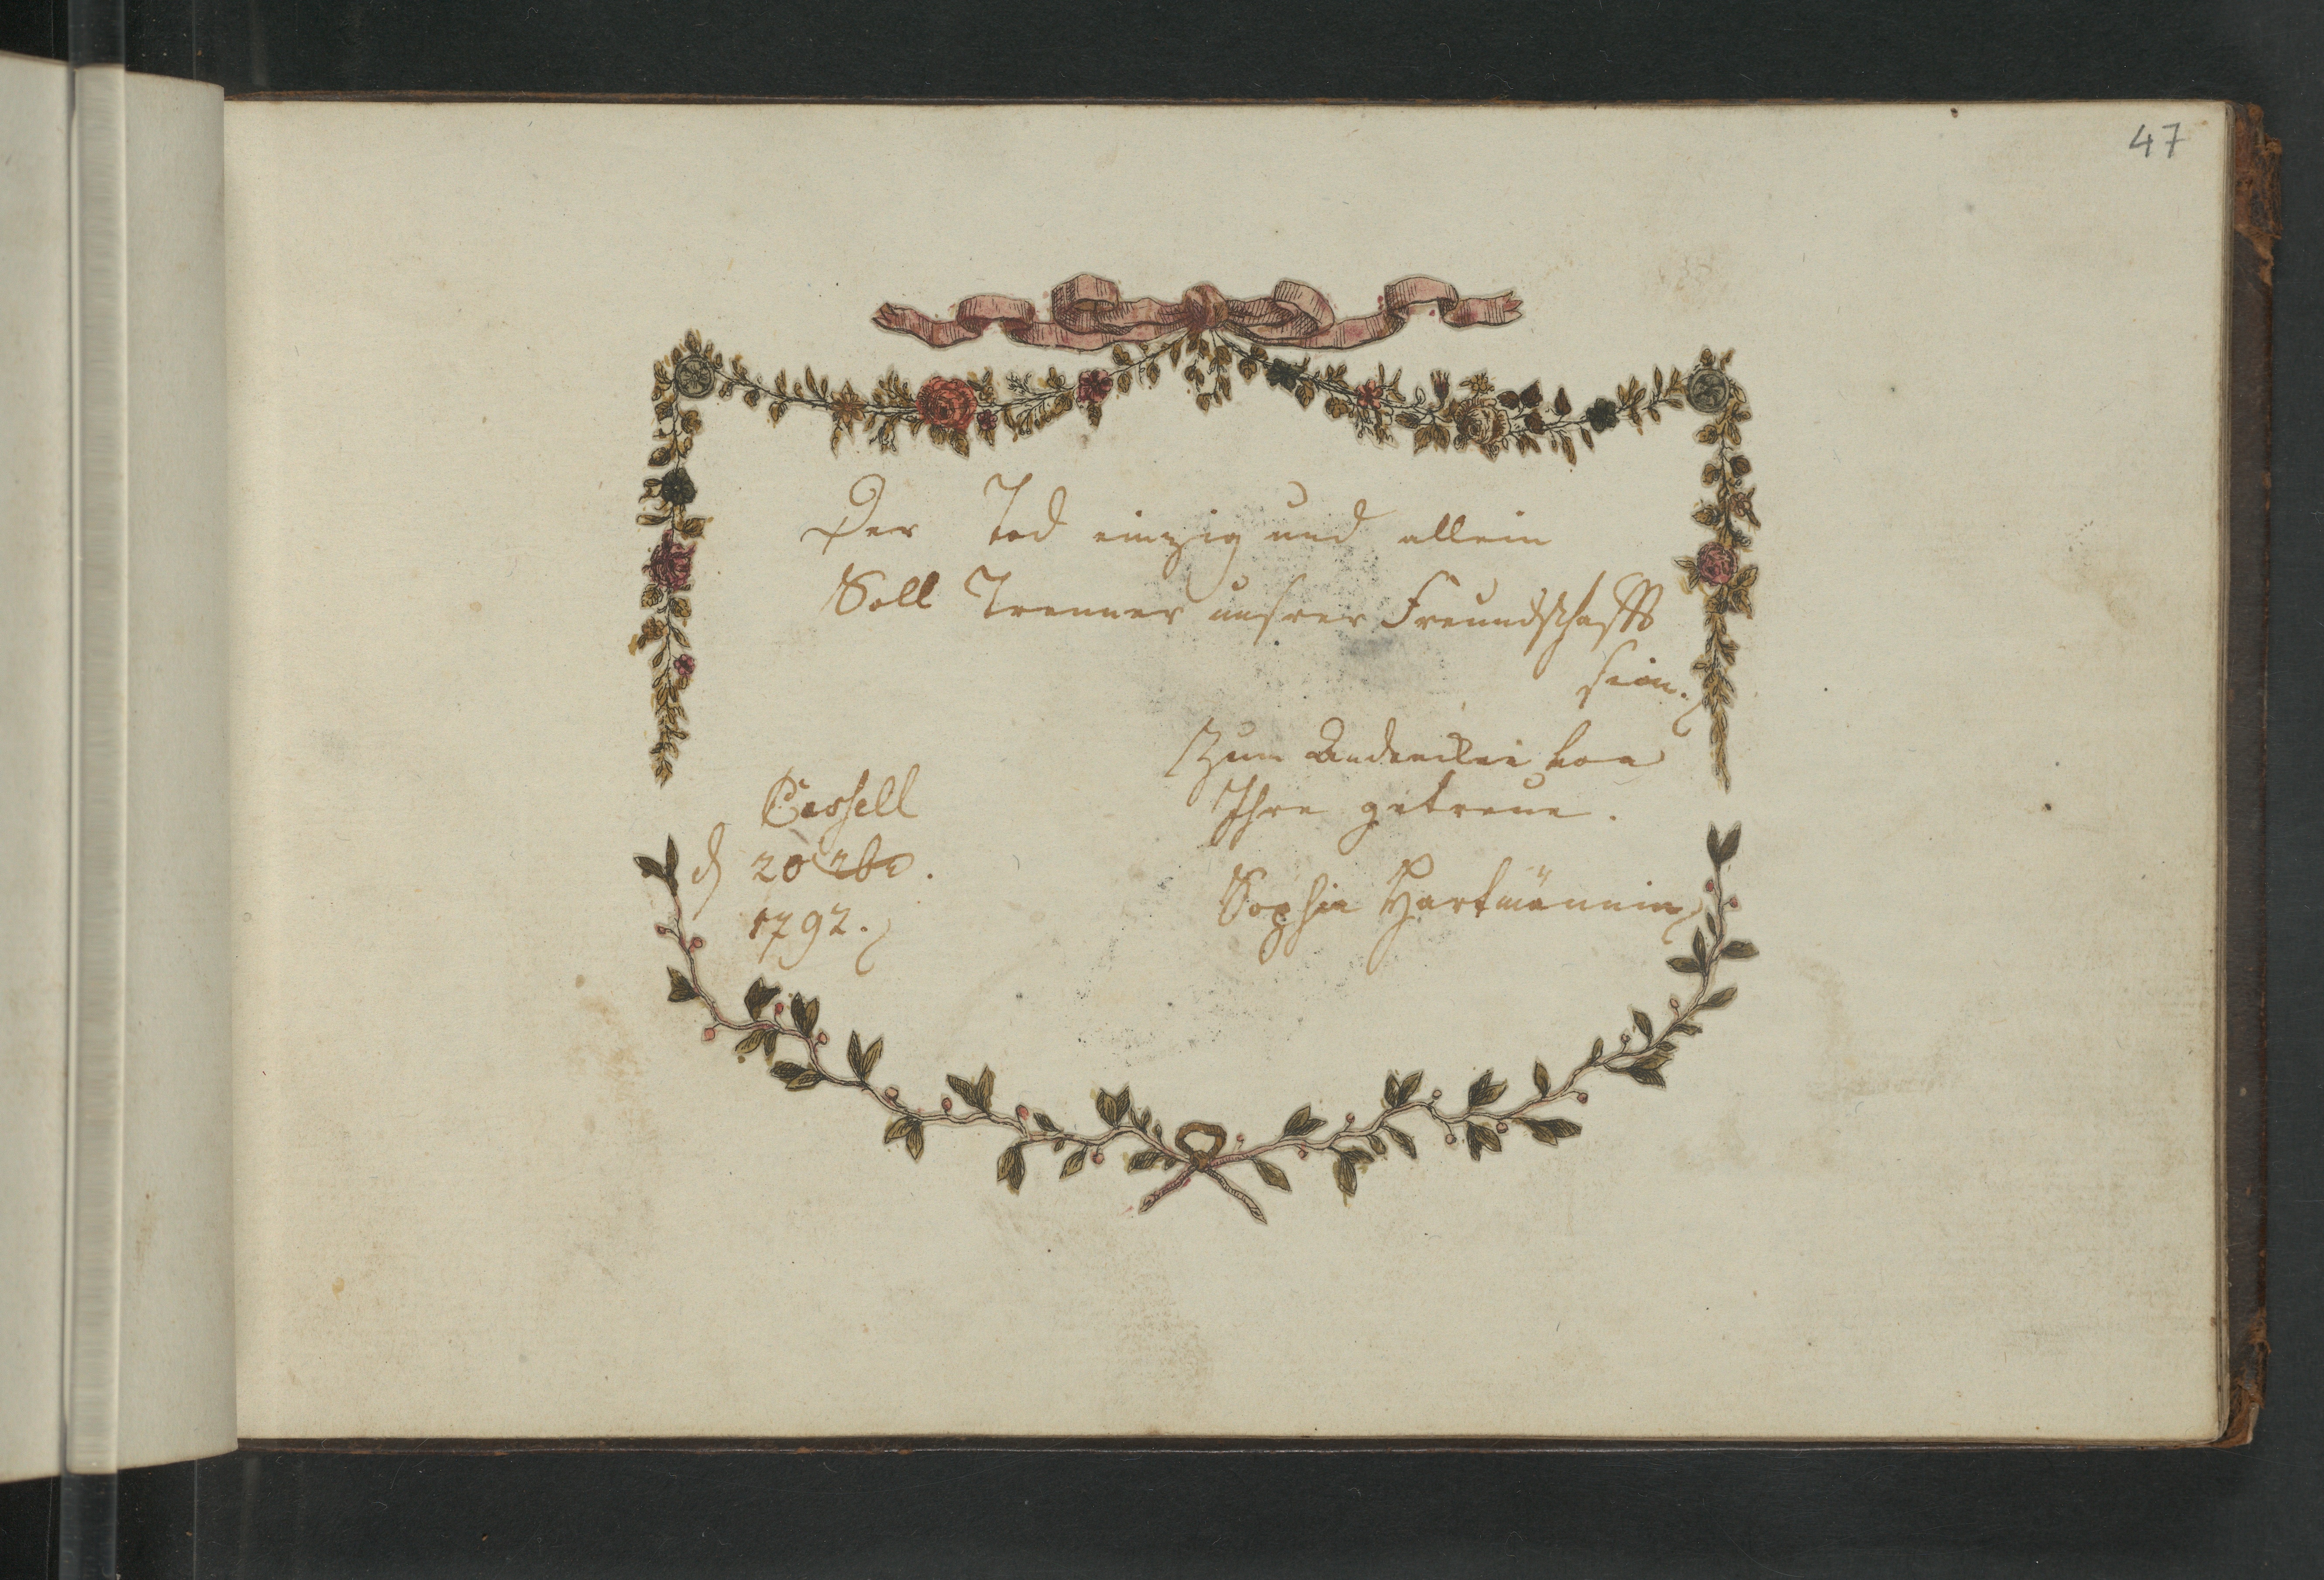 47
Der Tod einzig und allein
Soll Trenner unsrer Freundschafft
sein.
Zum Andencken von
Ihre getreue.
Cassell
Sophie Hartmännin
d 20
1792.